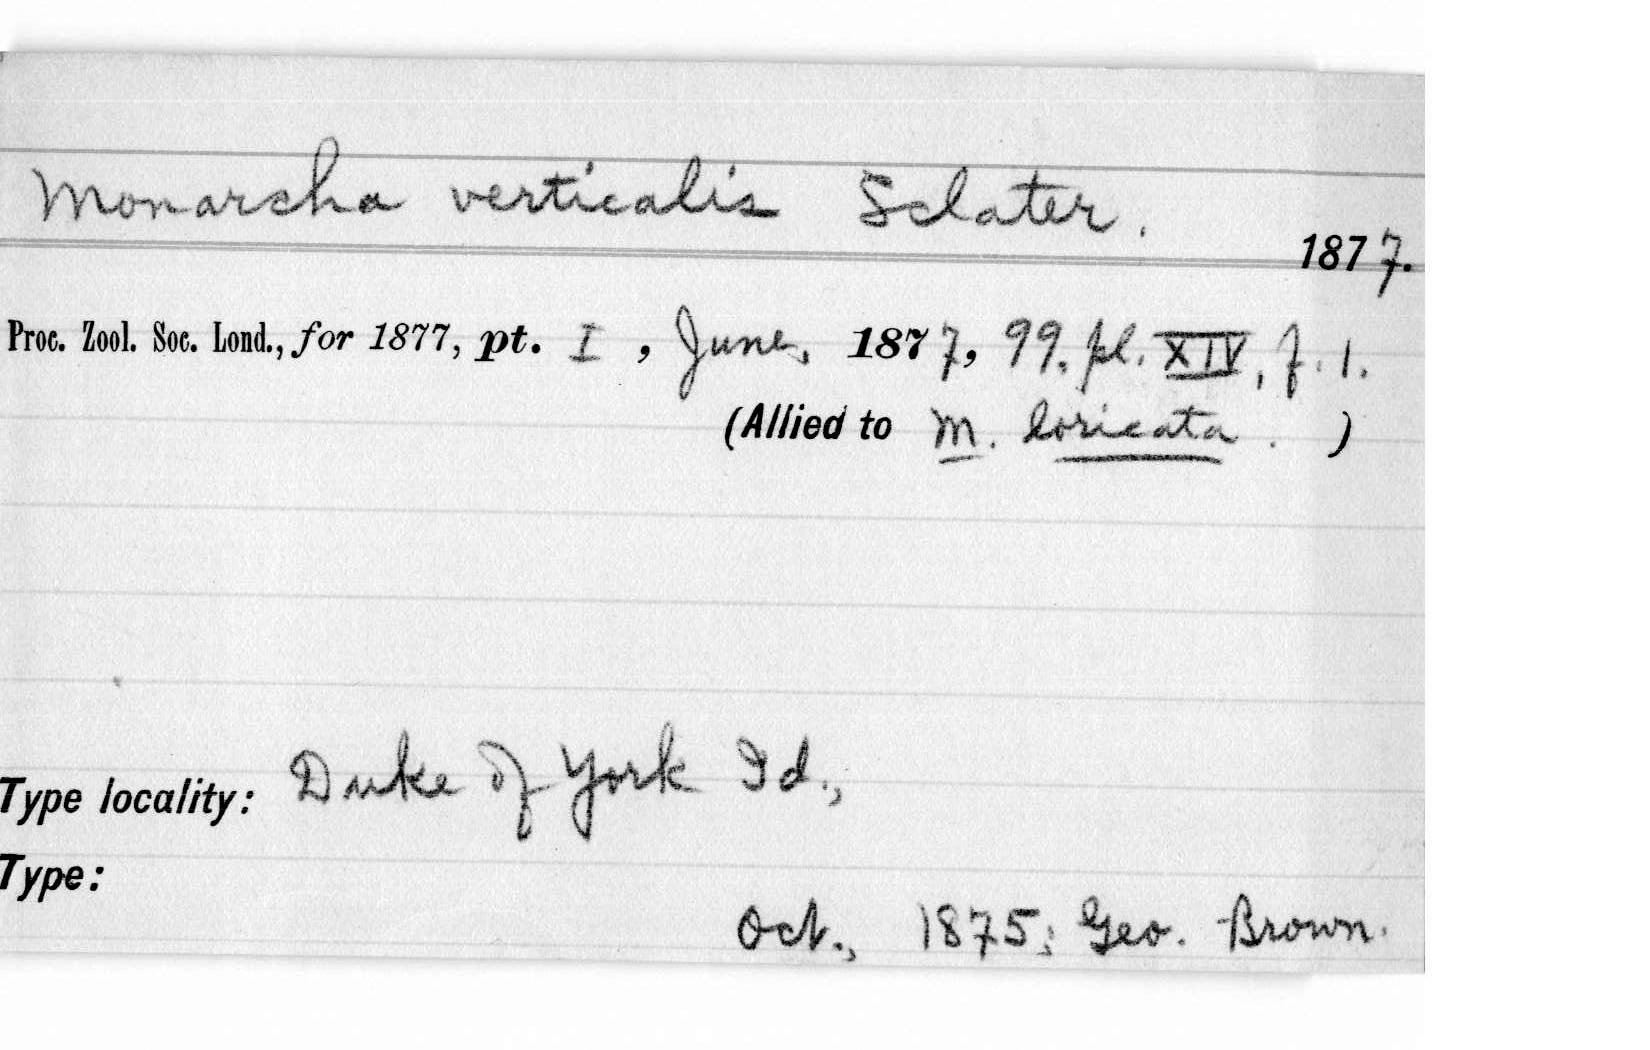 Monarcha verticalis Sclater.
1877.
Proc. Zool. Soc. Lond., for 1877, pt. I, June, 1877, 99. pl. XIV, f. 1.
(Allied to M. loricata. )
Type locality: Duke of York Id.,
Type:
Oct., 1875; Geo. Brown.